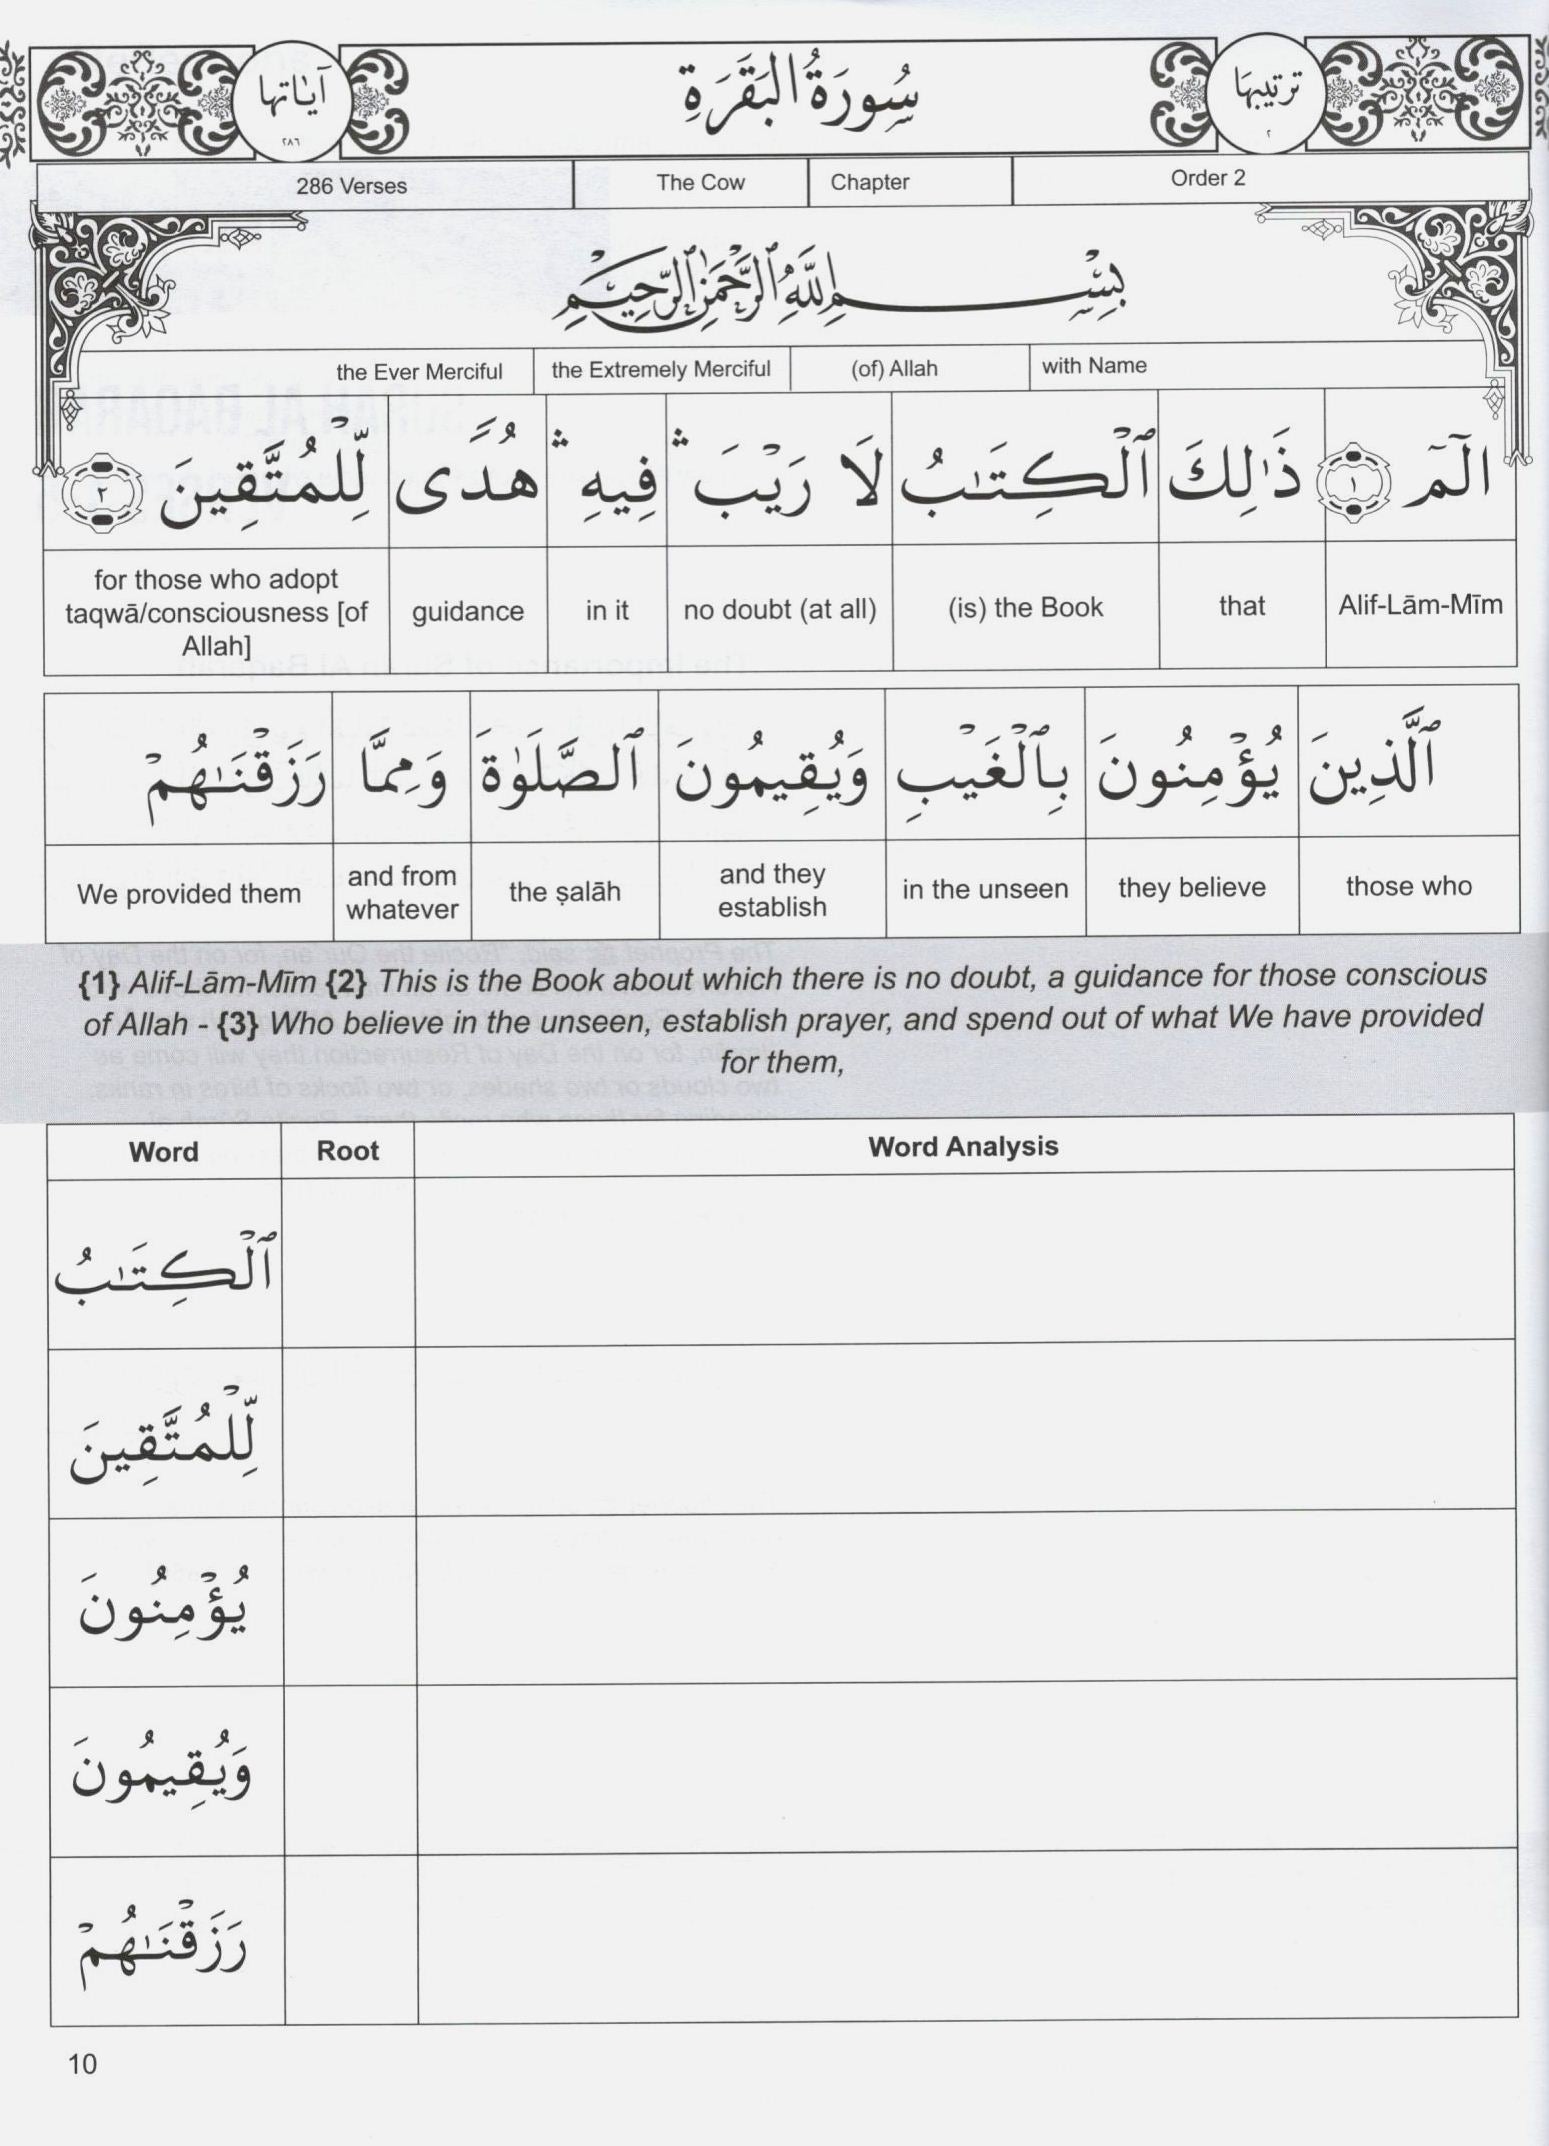 آياتها ٢٨٦ سُورَةُ الْبَقَرَةِ ترتيبها ٢
286 Verses The Cow Chapter Order 2
بِسْمِ ٱللَّهِ ٱلرَّحْمَٰنِ ٱلرَّحِيمِ
the Ever Merciful the Extremely Merciful (of) Allah with Name
الٓمٓ ١ ذَٰلِكَ ٱلْكِتَٰبُ لَا رَيْبَ ۛ فِيهِ ۛ هُدًى لِّلْمُتَّقِينَ ٢
for those who adopt taqwā/consciousness [of Allah] guidance in it no doubt (at all) (is) the Book that Alif-Lām-Mīm
ٱلَّذِينَ يُؤْمِنُونَ بِٱلْغَيْبِ وَيُقِيمُونَ ٱلصَّلَوٰةَ وَمِمَّا رَزَقْنَٰهُمْ
We provided them and from whatever the ṣalāh and they establish in the unseen they believe those who
{1} Alif-Lām-Mīm {2} This is the Book about which there is no doubt, a guidance for those conscious
of Allah - {3} Who believe in the unseen, establish prayer, and spend out of what We have provided
for them,
Word Root Word Analysis
ٱلْكِتَٰبُ
لِّلْمُتَّقِينَ
يُؤْمِنُونَ
وَيُقِيمُونَ
رَزَقْنَٰهُمْ
10